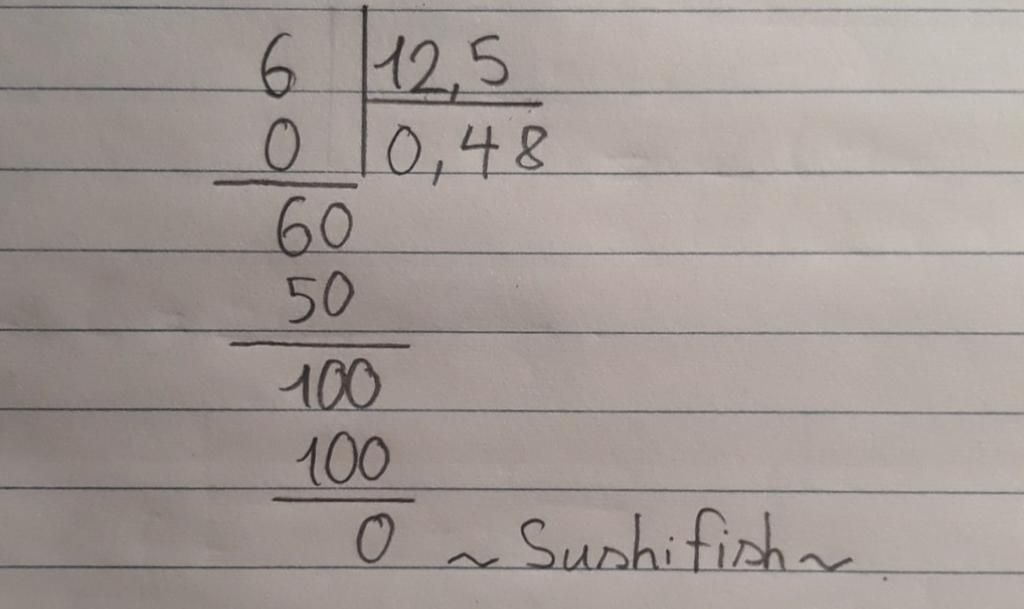 6 12,5
0 0,48
60
50
100
100
0 ~Sushifish~